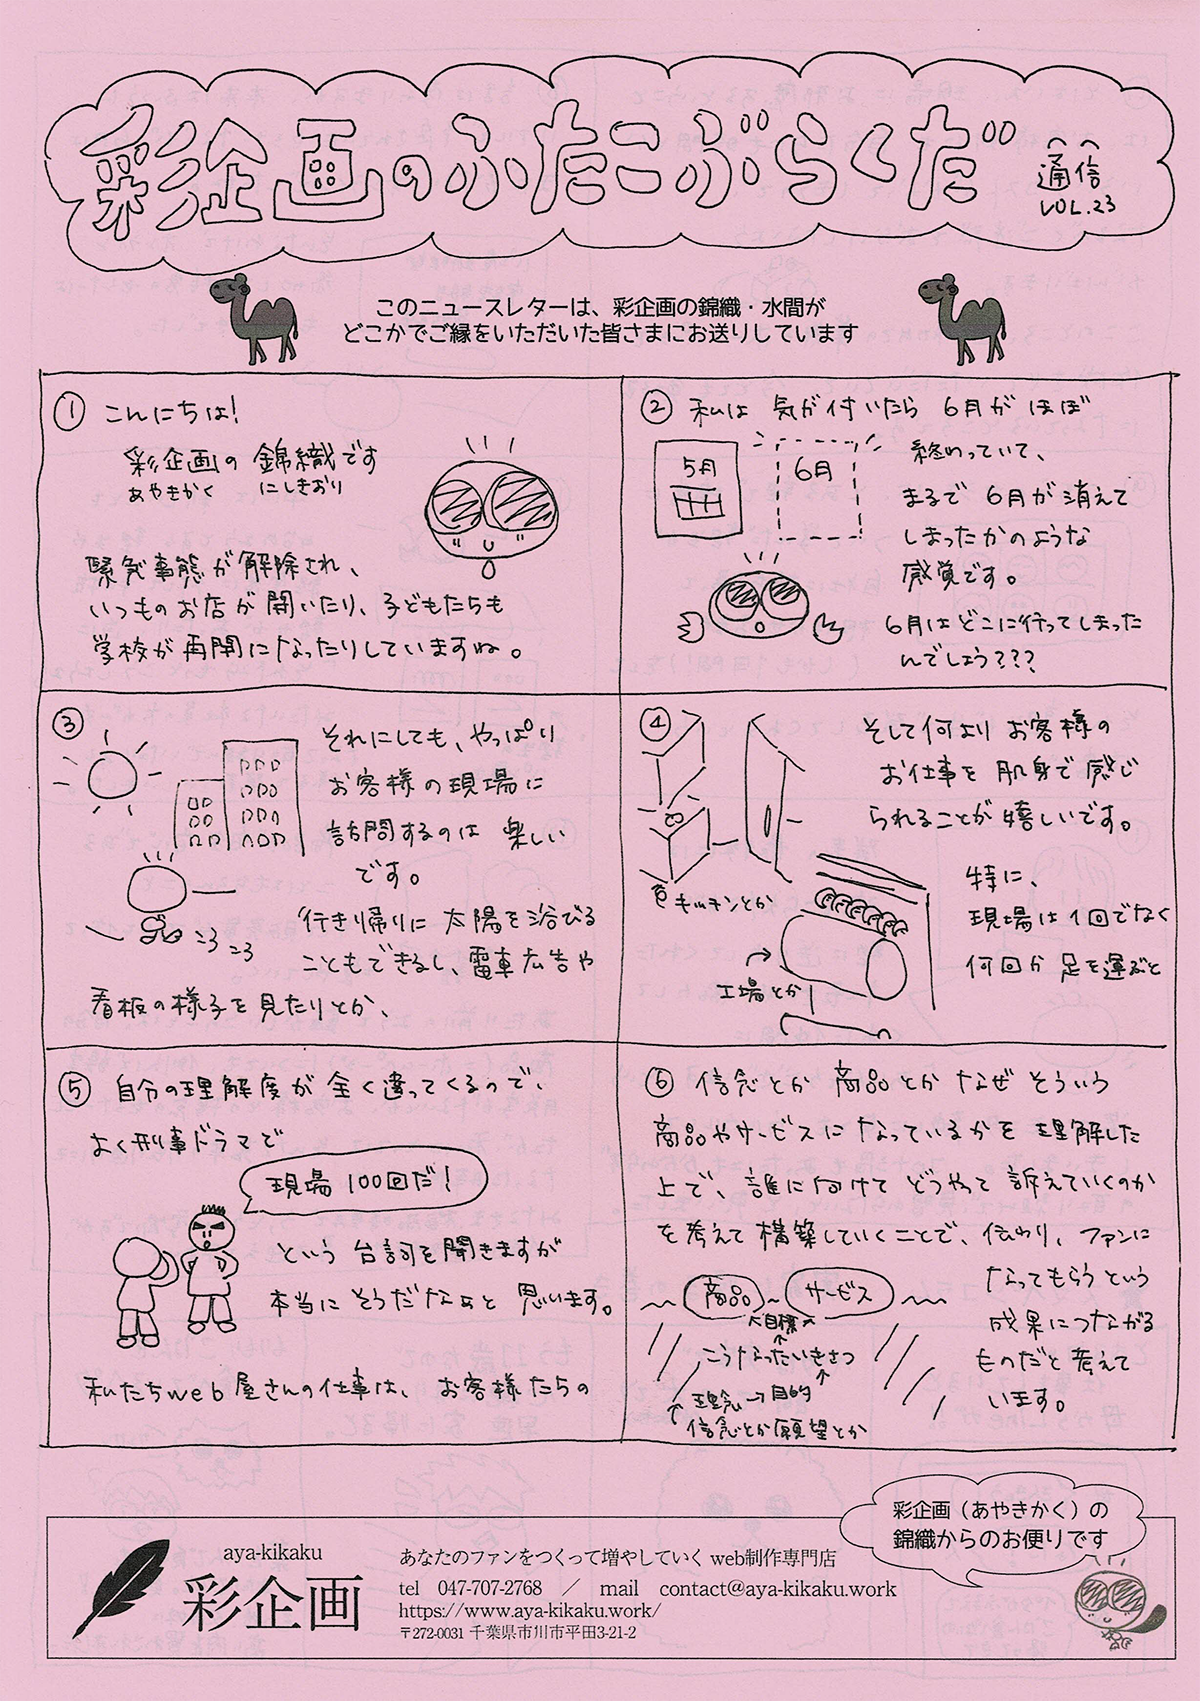 彩企画のふたこぶらくだ
通信
VOL.23
このニュースレターは、彩企画の錦織・水間が
どこかでご縁をいただいた皆さまにお送りしています
① こんにちは!
彩企画の 錦織です
あやきかく にしきおり
緊急事態が解除され、
いつものお店が開いたり、子どもたちも
学校が再開になったりしていますね。
② 私は 気が付いたら 6月が ほぼ
終わっていて、
まるで 6月が消えて
しまったかのような
感覚です。
6月はどこに行ってしまった
んでしょう???
5月
6月
③ それにしても、やっぱり
お客様の現場に
訪問するのは 楽しい
です。
行き帰りに 太陽を浴びる
こともできるし、電車広告や
看板の様子を見たりとか、
ころ ころ
④ そして何より お客様の
お仕事を 肌身で感じ
られることが嬉しいです。
特に、
現場は1回でなく
何回か 足を運ぶと
キッチンとか
工場とか
⑤ 自分の理解度が 全く違ってくるので、
よく刑事ドラマで
現場100回だ!
という 台詞を聞きますが
本当に そうだなぁと 思います。
私たちweb屋さんの仕事は、お客様たちの
⑥ 信念とか 商品とか なぜ そういう
商品やサービスに なっているかを 理解した
上で、誰に向けて どうやって 訴えていくのか
を考えて 構築していくことで、伝わり、ファンに
なってもらうという
成果につながる
ものだと考えて
います。
商品
サービス
目標
↑
こうなったいきさつ
理念→目的
信念とか願望とか
彩企画（あやきかく）の
錦織からのお便りです
aya-kikaku
彩企画
あなたのファンをつくって増やしていく web制作専門店
tel 047-707-2768 ／ mail contact@aya-kikaku.work
https://www.aya-kikaku.work/
〒272-0031 千葉県市川市平田3-21-2